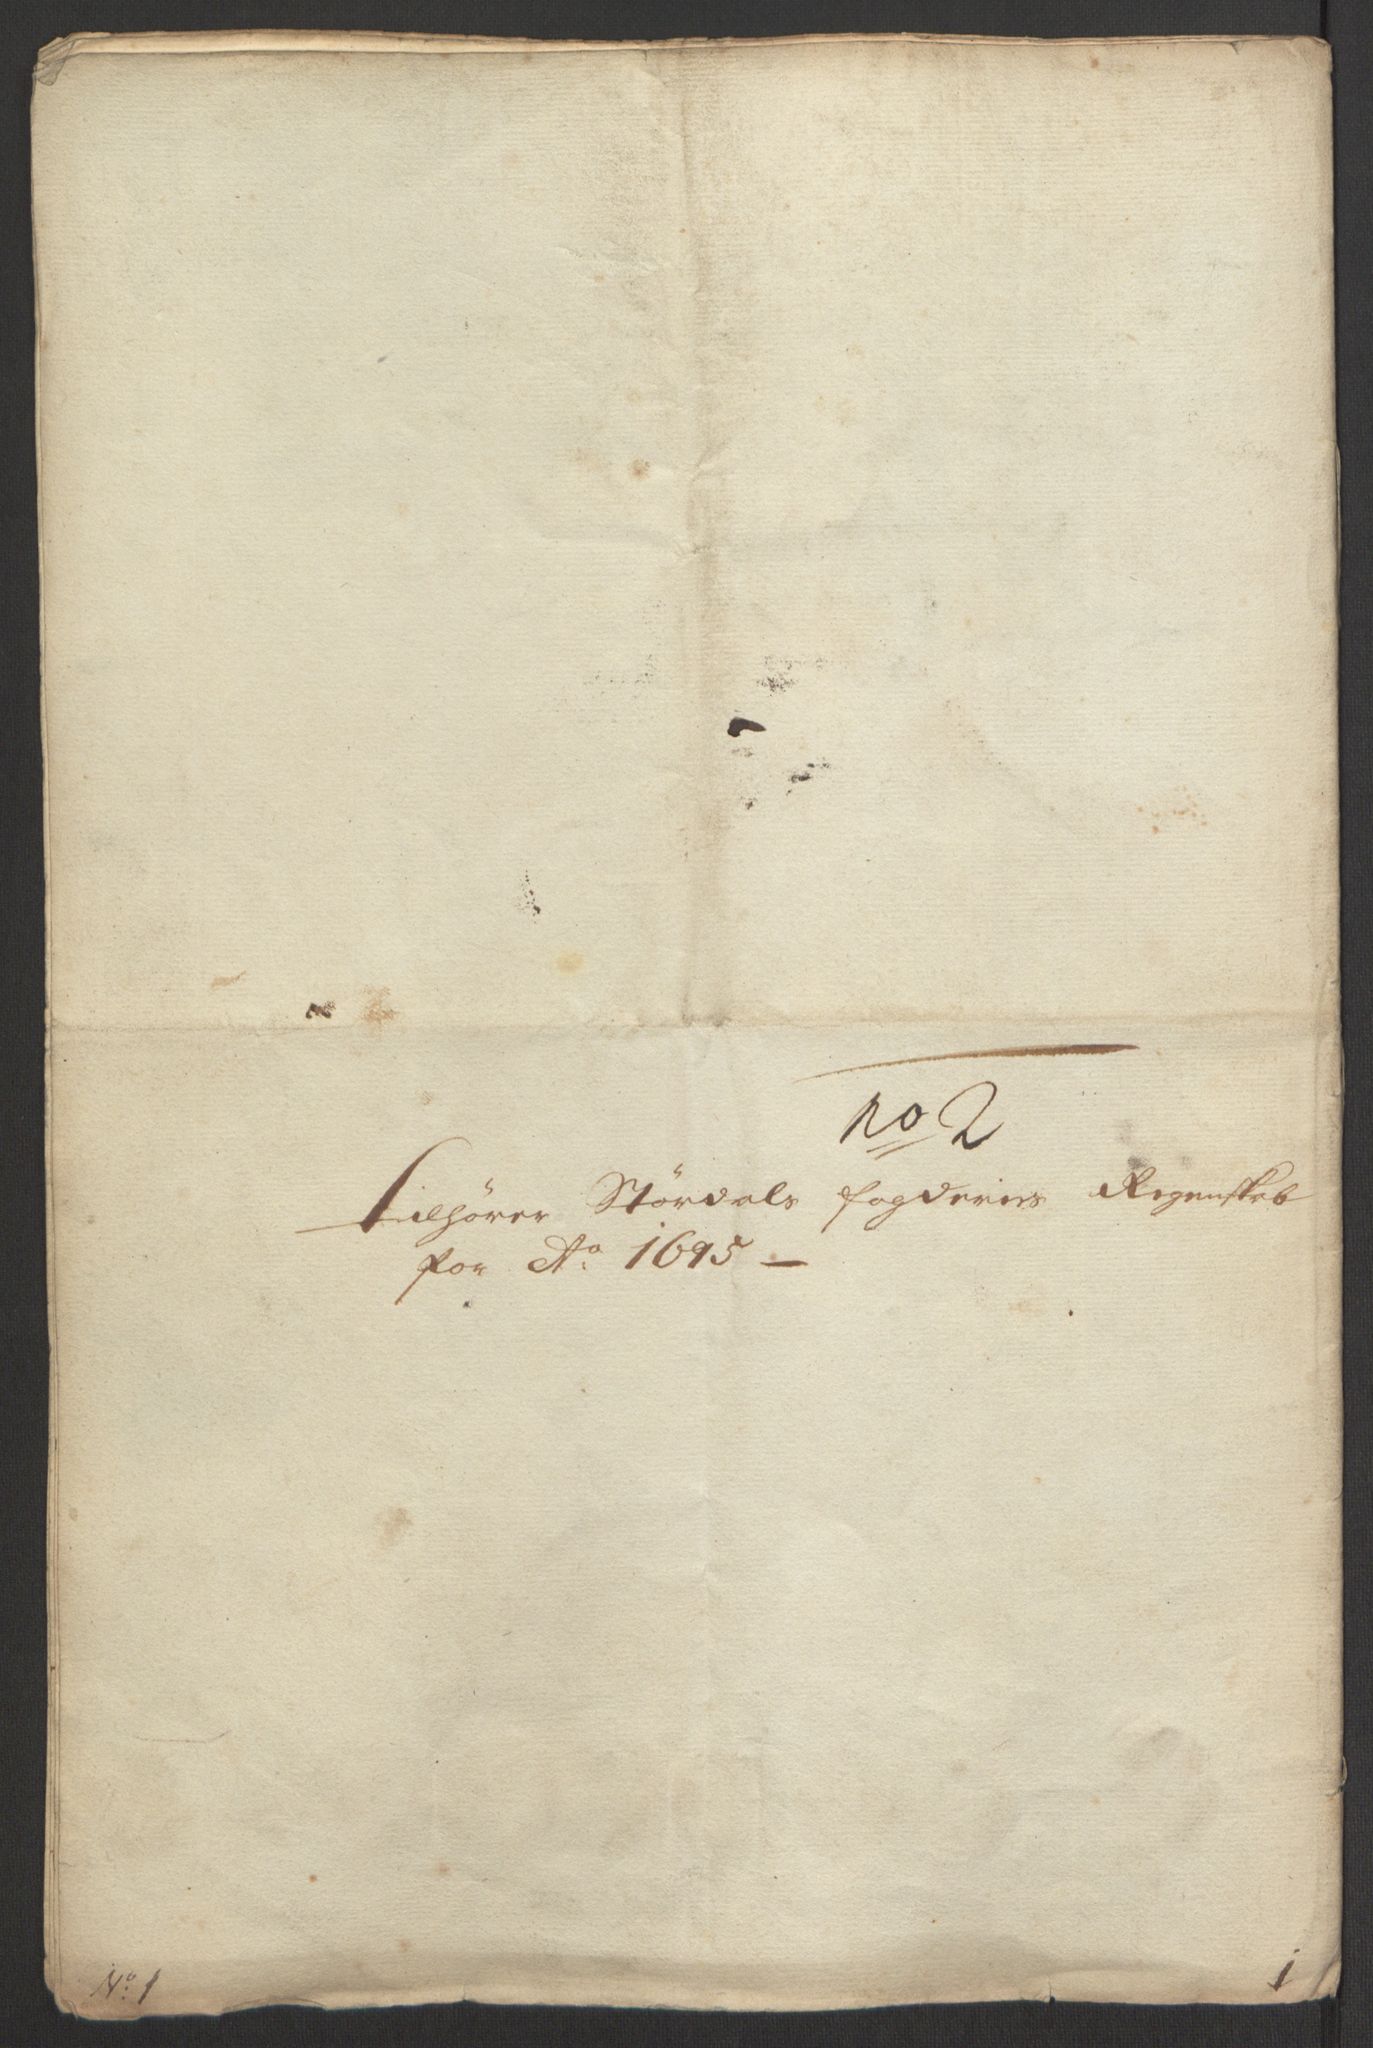 No 2
Tilhörer Stördals fogderies Regenskab
for Ao. 1695 –
No. 1
1